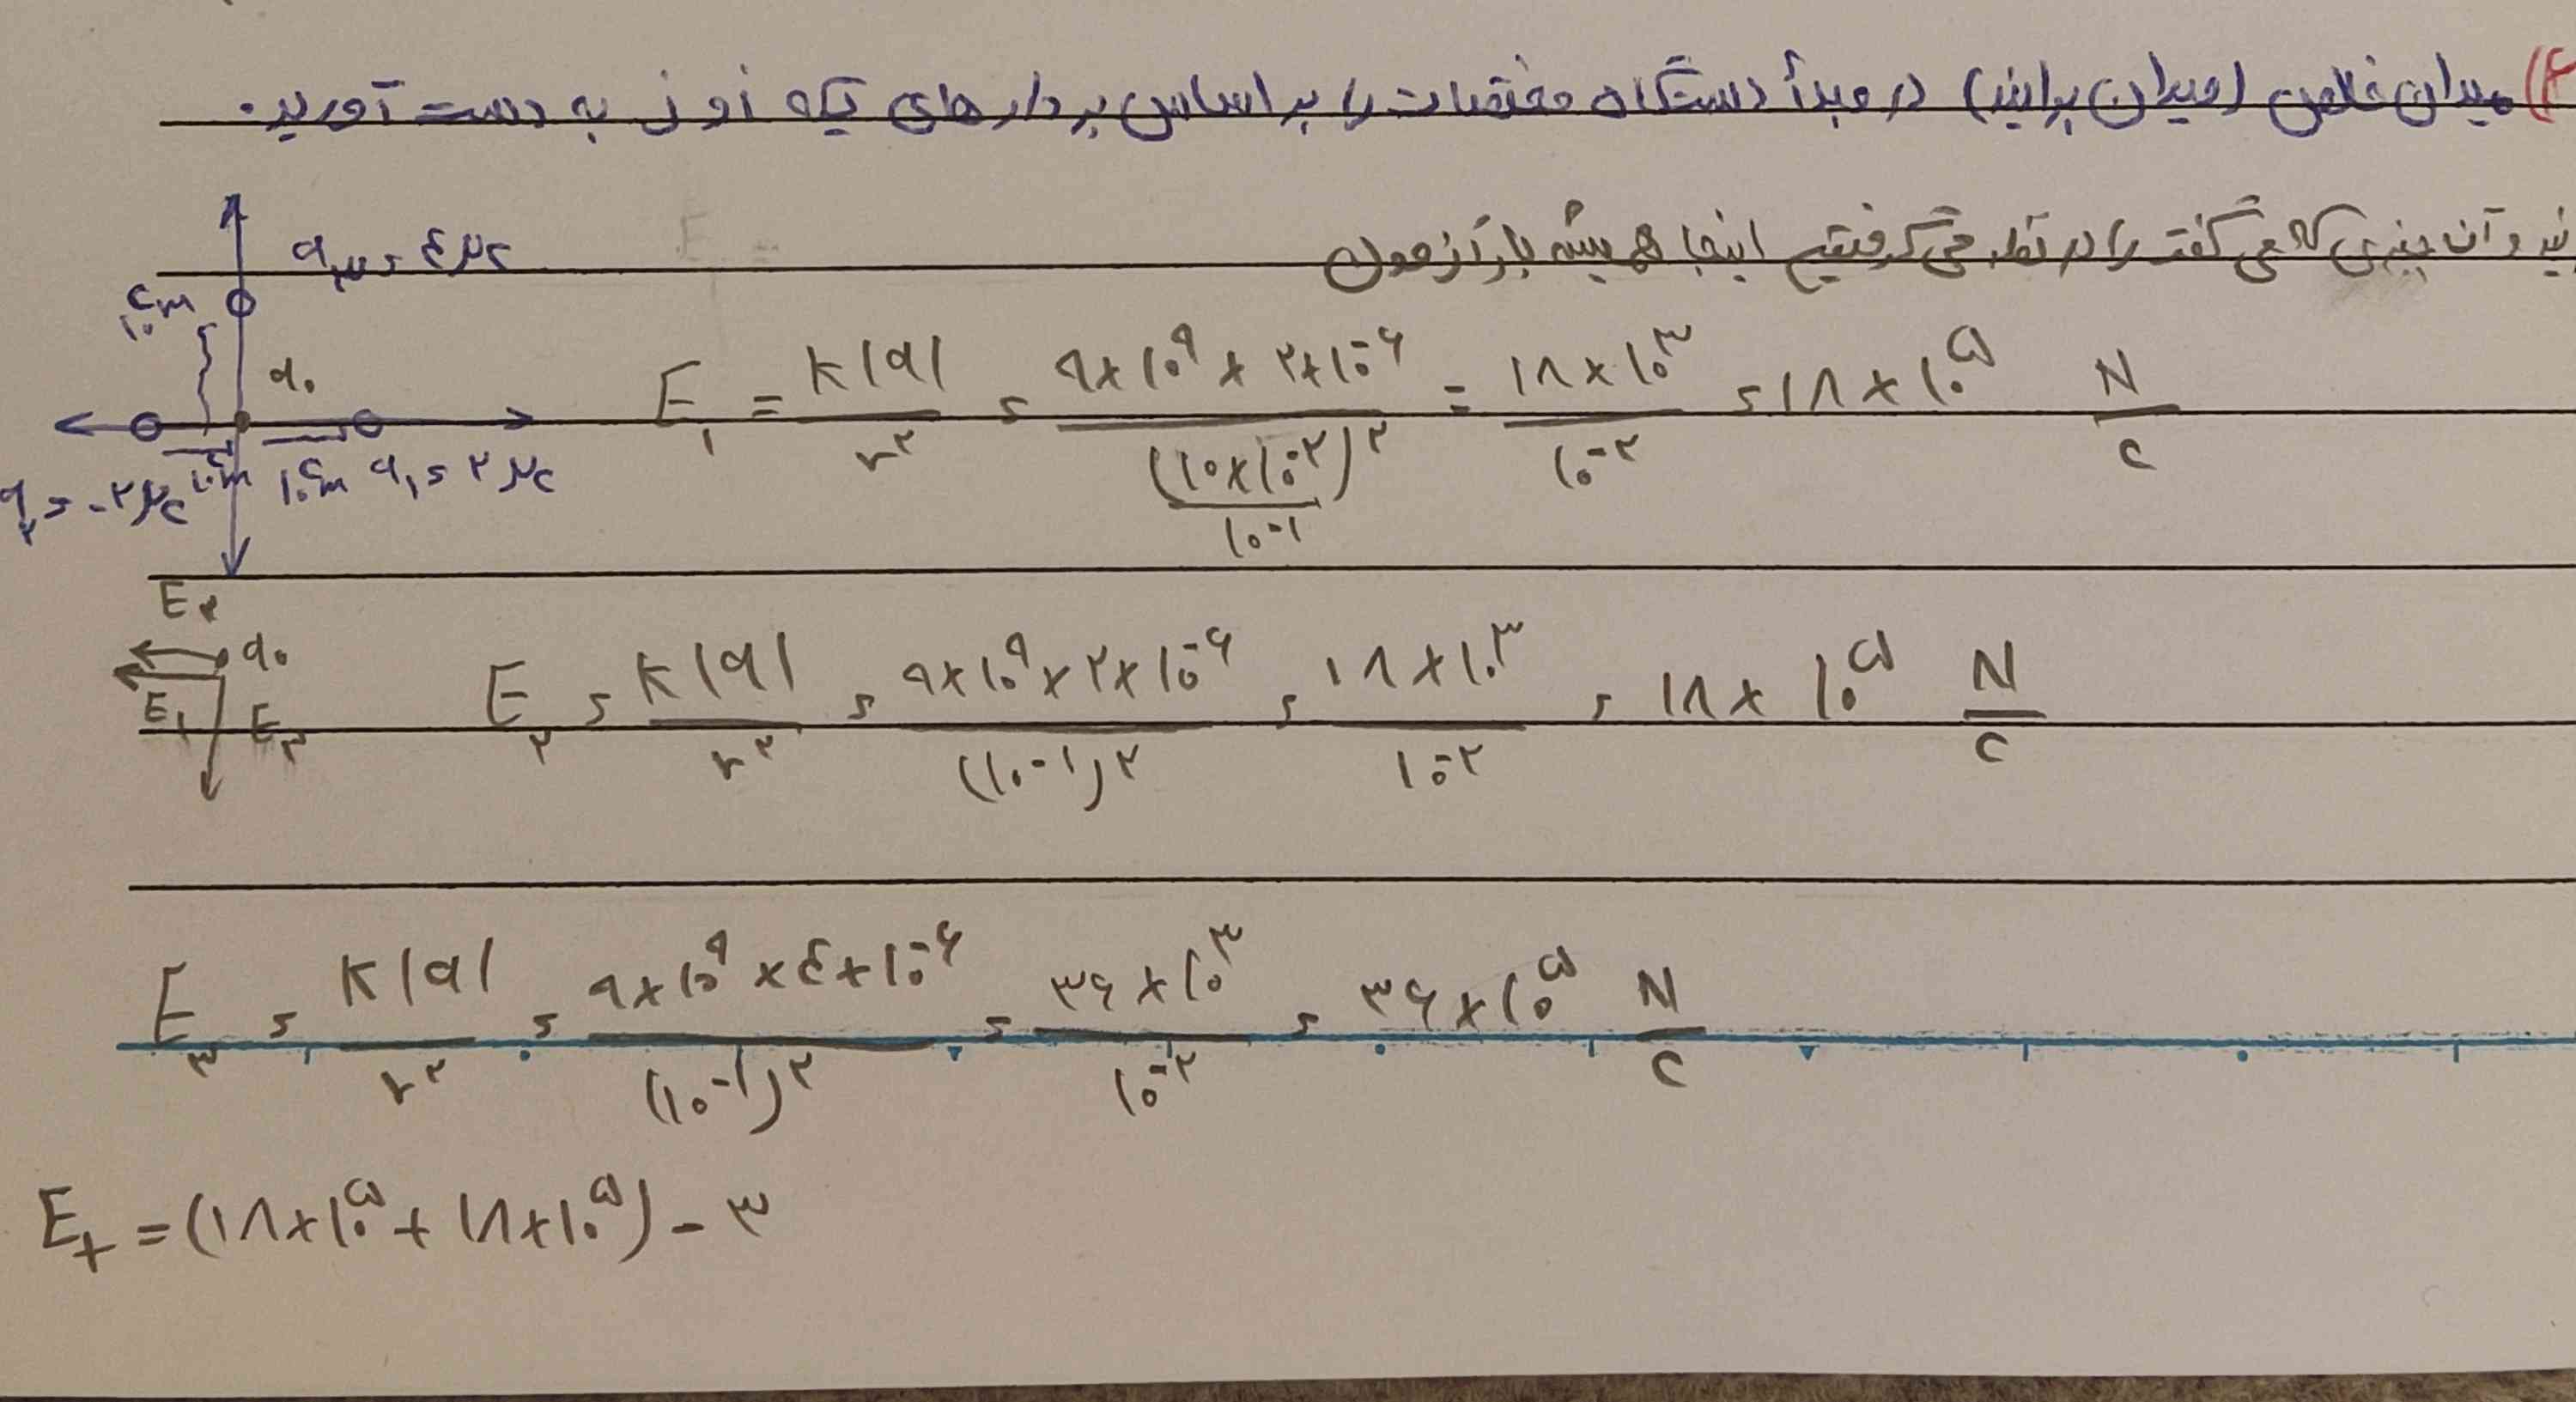 ۴) میدان خالص (میدان برایند) در مبدأ دستگاه مختصات را بر اساس بردارهای یکه i و j به دست آورید.
و آن چیزی که می گفت را در نظر می گرفتیم اینجا همیشه بار آزمون
q₃ = ۴μc
۱۰cm
q₀
q₂ = -۲μc ۱۰cm ۱۰cm q₁ = ۲μc
E₁ = k|q| / r² = ۹×۱۰⁹ × ۲×۱۰⁻⁶ / (۱۰×۱۰⁻²)² = ۱۸×۱۰³ / ۱۰⁻² = ۱۸×۱۰⁵ N/C
۱۰⁻¹
E₂
q₀
E₁ E₃
E₂ = k|q| / r² = ۹×۱۰⁹×۲×۱۰⁻⁶ / (۱۰⁻¹)² = ۱۸×۱۰³ / ۱۰⁻² = ۱۸×۱۰⁵ N/C
E₃ = k|q| / r² = ۹×۱۰⁹×۴×۱۰⁻⁶ / (۱۰⁻¹)² = ۳۶×۱۰³ / ۱۰⁻² = ۳۶×۱۰⁵ N/C
E_T = (۱۸×۱۰⁵ + ۱۸×۱۰⁵) - ۳